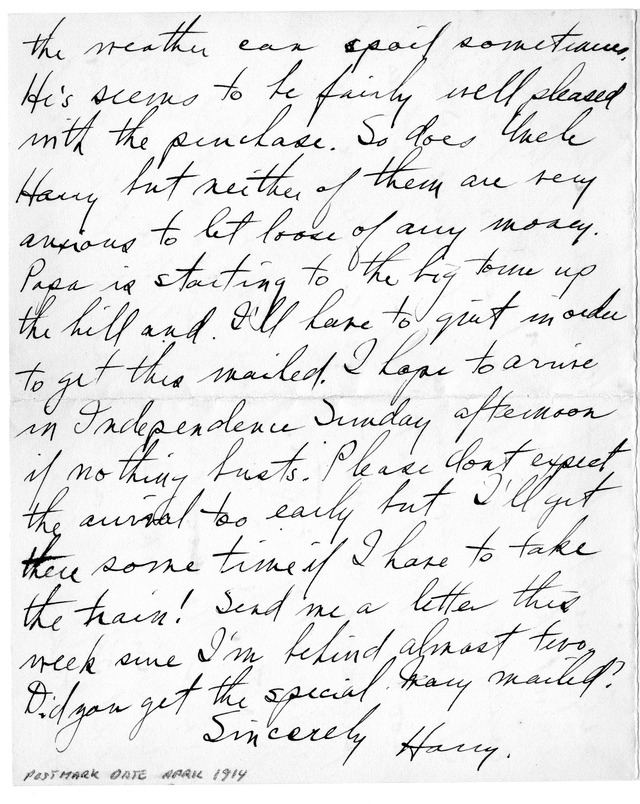 the weather can spoil sometimes.
He's seems to be fairly well pleased
with the purchase. So does Uncle
Harry but neither of them are very
anxious to let loose of any money.
Papa is starting to the big town up
the hill and I'll have to quit in order
to get this mailed. I hope to arrive
in Independence Sunday afternoon
if nothing busts. Please dont expect
the arrival too early but I'll get
there some time if I have to take
the train! Send me a letter this
week sure I'm behind almost two.
Did you get the special Mary mailed?
Sincerely Harry.
POSTMARK DATE APRIL 1914